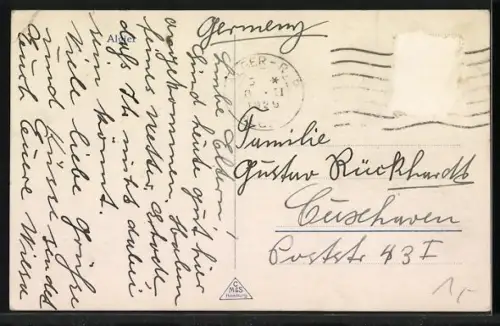 Alster
Germany
Liebe Eltern!
Sind heute gut hier
angekommen. Haben
feines Wetter. Schade
daß Ihr nicht dabei
sein könnt.
Viele liebe Grüße
und Küsse sendet
Euch Eure Wilsa
1929
Familie
Gustav Rückhardt
Cuxhaven
Poststr 43 I
C
M&S
Hamburg
1,-